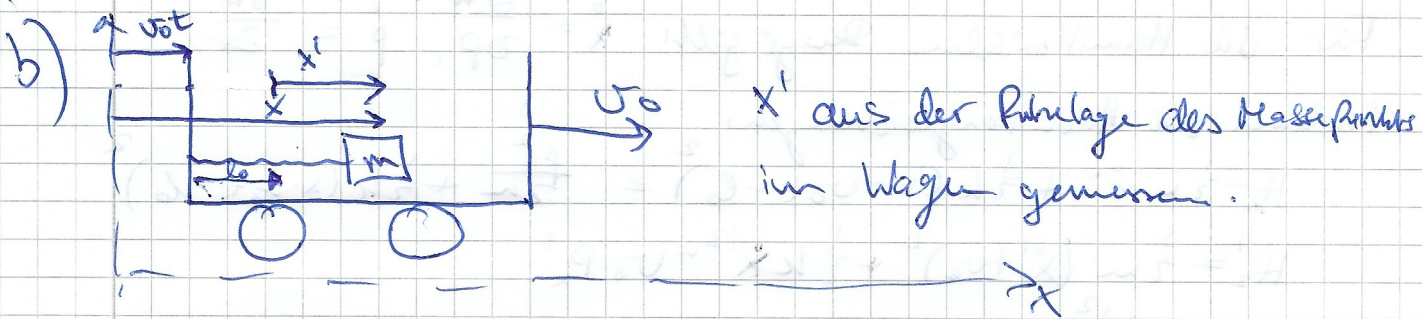 b)
v₀t
x'
x
l₀
m
v₀
x' aus der Ruhelage des Massepunkts
im Wagen gemessen.
x